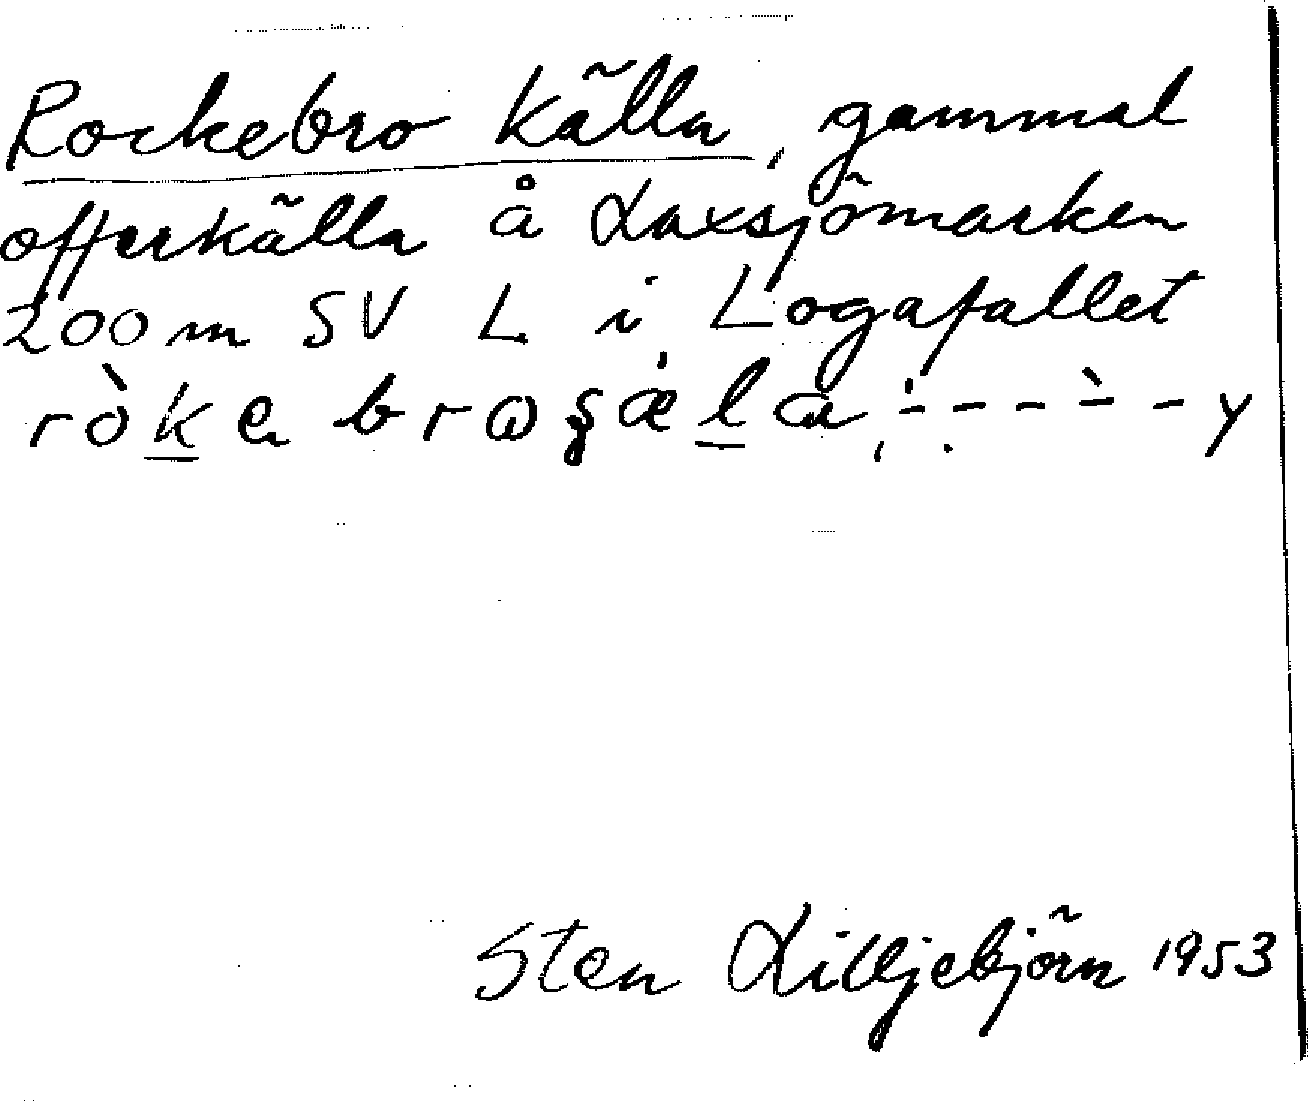 Rockebro källa, gammal
offerkälla å Laxsjömarken
200 m SV L i Logafallet
ròke broʂæla, - - - - - y
Sten Lilljebjörn 1953